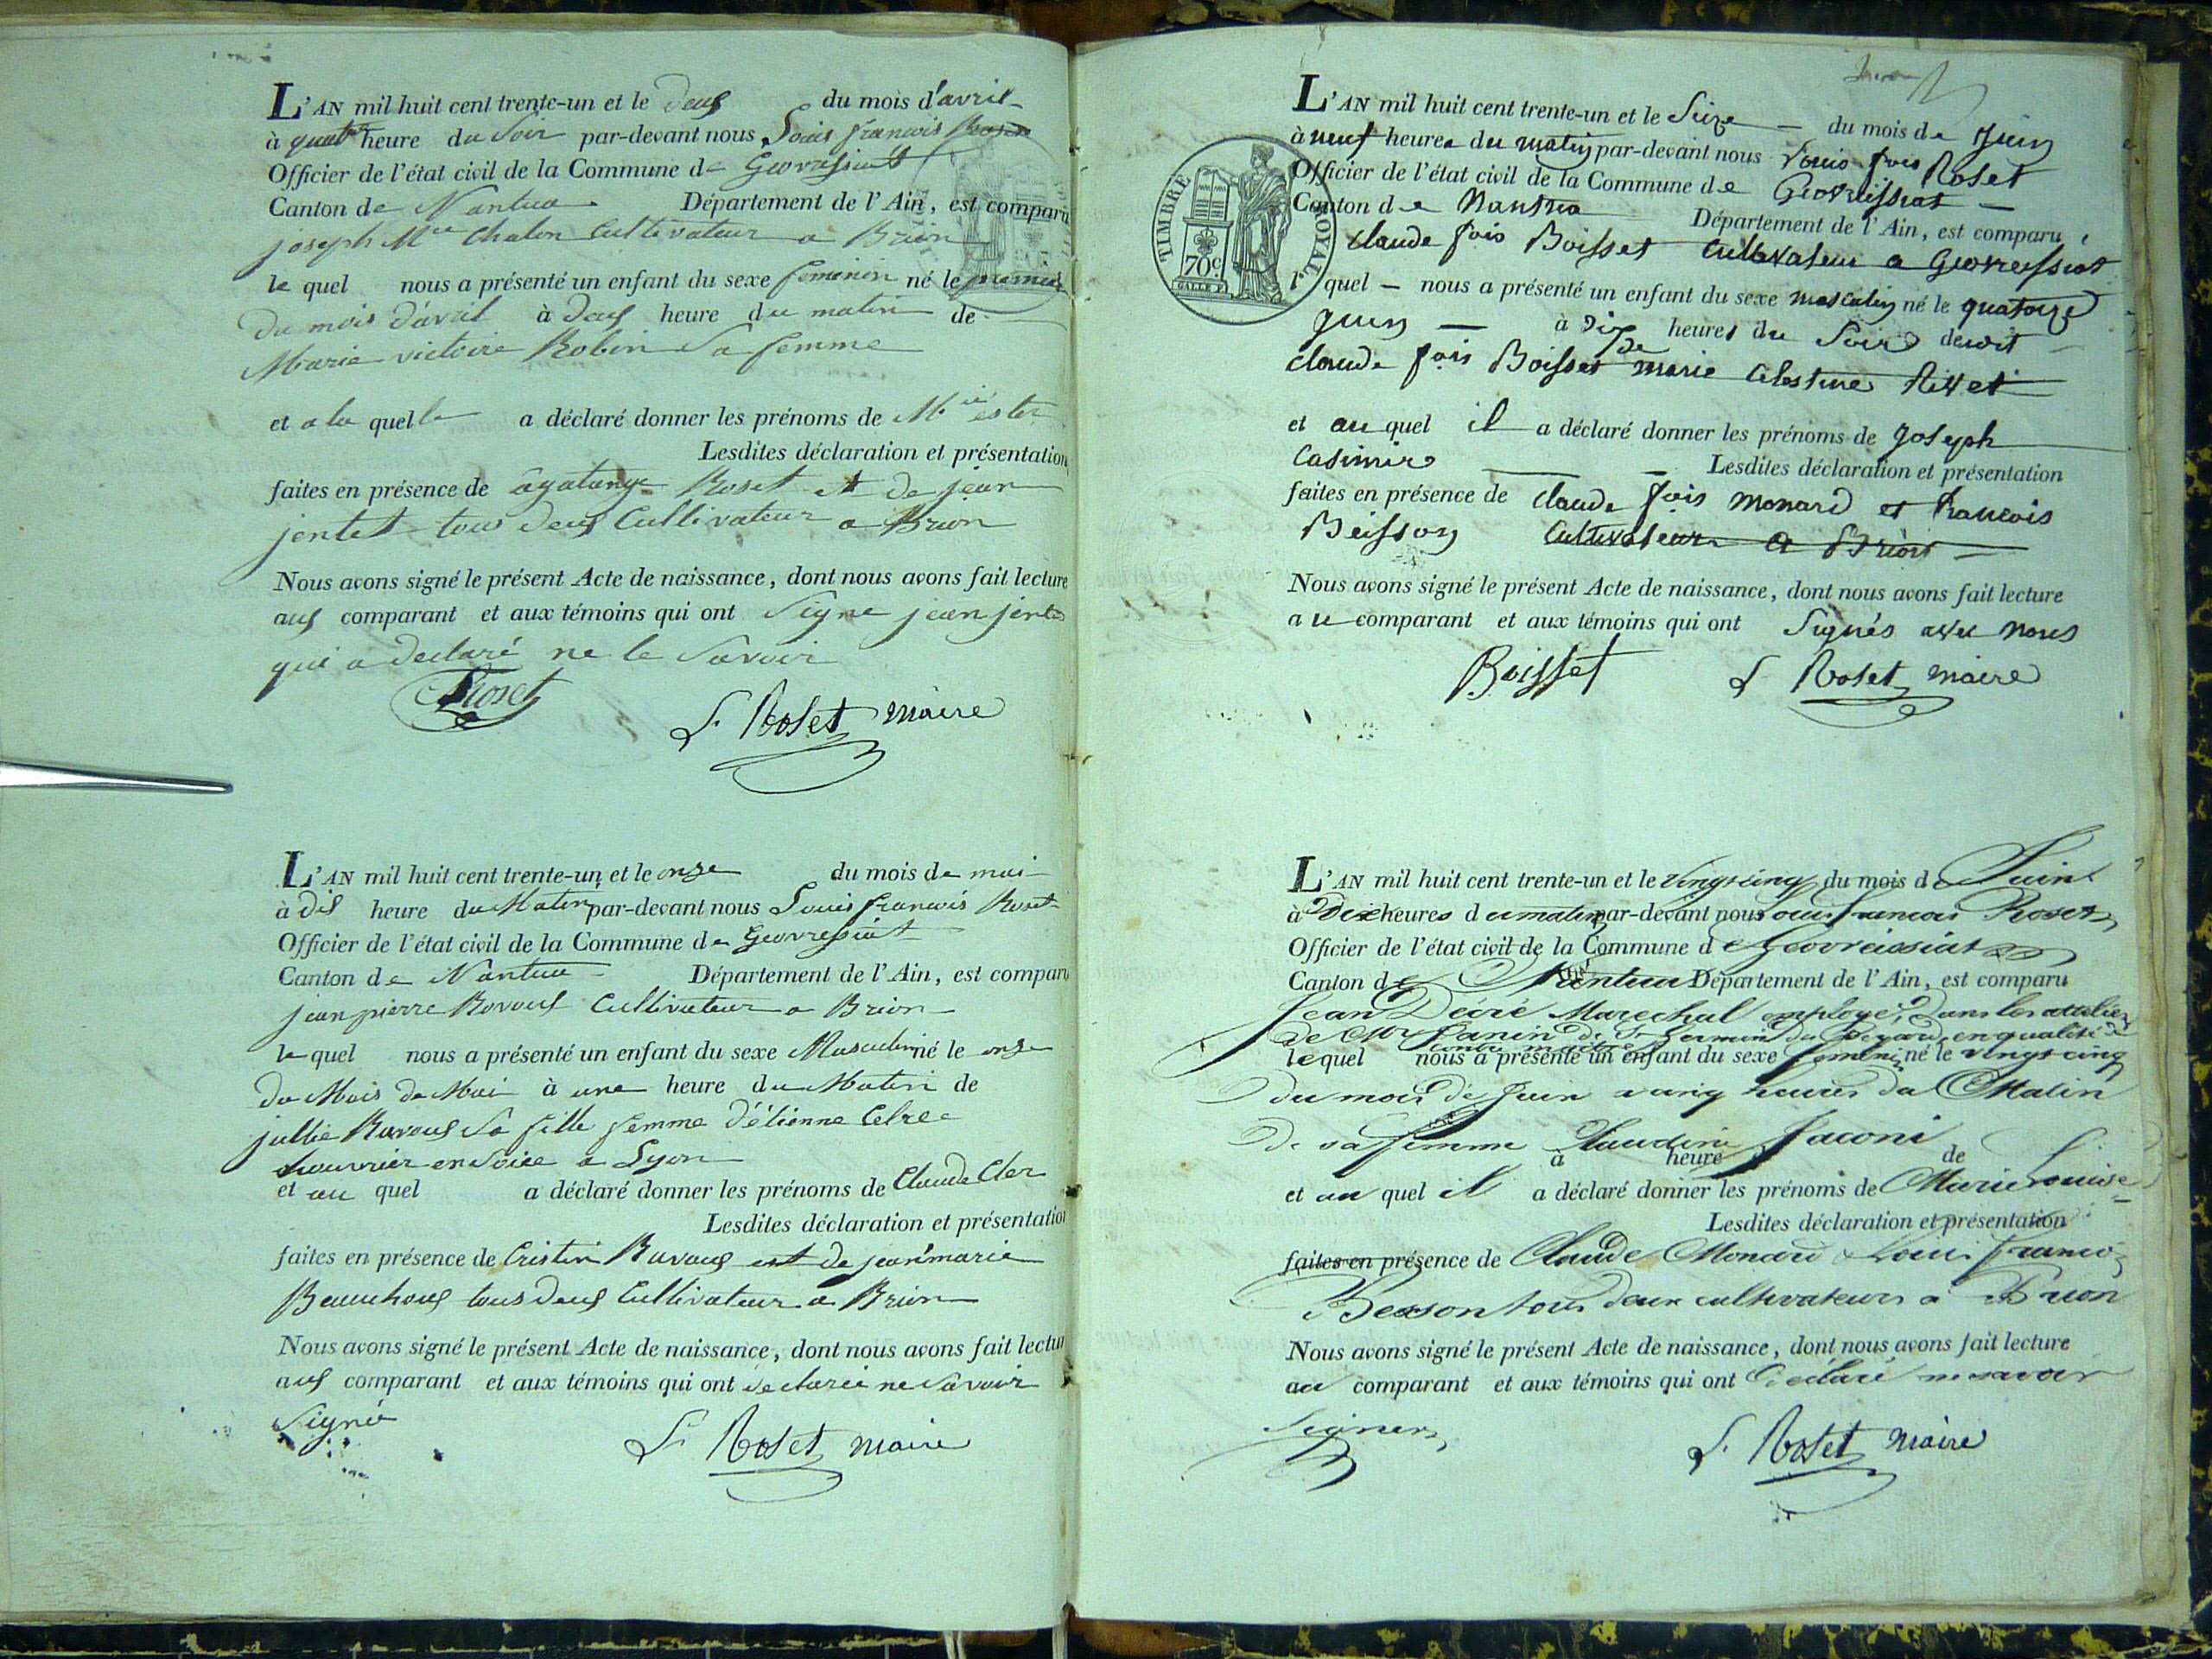 L'AN mil huit cent trente-un et le deuf du mois d'avril
à quatre heure du Soir par-devant nous Louis francois Roset
Officier de l'état civil de la Commune de Geovressiat
Canton de Nantua Département de l'Ain, est comparu
joseph Mie Chalon Cultivateur a Brion
le quel nous a présenté un enfant du sexe feminin né le premier
du mois d'avril à deuf heure du matin de
Marie victoire Robin Sa femme
et a la quelle a déclaré donner les prénoms de Mie ester
Lesdites déclaration et présentation
faites en présence de agatange Roset et de jean
jentet tous deuf Cultivateur a Brion
Nous avons signé le présent Acte de naissance, dont nous avons fait lecture
auf comparant et aux témoins qui ont Signe jean jentet
qui a declaré ne le Savoir
Roset
L. Roset maire
L'AN mil huit cent trente-un et le onze du mois de mai
à dis heure du Matin par-devant nous Louis francois Roset
Officier de l'état civil de la Commune de Geovressiat
Canton de Nantua Département de l'Ain, est comparu
jean pierre Ravouf Cultivateur a Brion
le quel nous a présenté un enfant du sexe Masculin né le onze
du Mois de Mai à une heure du Matin de
jullie Ravouf Sa fille femme d'étienne
houvrier en Soice a Lyon
et au quel a déclaré donner les prénoms de Claude Cler
Lesdites déclaration et présentation
faites en présence de Cristin Ravouf et de jean marie
Beauchouf tous deuf Cultivateur a Brion
Nous avons signé le présent Acte de naissance, dont nous avons fait lecture
auf comparant et aux témoins qui ont declarée ne Savoir
Signée
L. Roset maire
L'AN mil huit cent trente-un et le Seize du mois de Juin
à neuf heures du matin par-devant nous Louis fois Roset
Officier de l'état civil de la Commune de Geovreissiat
Canton de Nantua Département de l'Ain, est comparu
TIMBRE ROYAL
70c
Claude fois Boisset Cultivateur a Geovreissiat
l quel nous a présenté un enfant du sexe masculin né le quatorze
Juin à Dix heures du Soir deudit
Claude fois Boisset de marie Celestine Rivet
et au quel il a déclaré donner les prénoms de Joseph
Casimir Lesdites déclaration et présentation
faites en présence de Claude fois Monard et francois
Beisson Cultivateurs a Brion
Nous avons signé le présent Acte de naissance, dont nous avons fait lecture
au comparant et aux témoins qui ont Signés avec nous
Boisset L. Roset maire
L'AN mil huit cent trente-un et le Vingt cinq du mois de Juin
à Dix heures du matin par-devant nous Louis francois Roset
Officier de l'état civil de la Commune de Geovreissiat
Canton de Nantua Département de l'Ain, est comparu
Jean Marechal employé Dans les attelier
de Mr en qualité de
contre maitre
le quel nous a présenté un enfant du sexe feminin né le vingt cinq
du mois de Juin a cinq heures du Matin
De sa femme Claudine Jaconi
à heure de
et au quel il a déclaré donner les prénoms de Marie Louise
Lesdites déclaration et présentation
faites en présence de Claude Monard & Louis francois
Besson tous deux cultivateurs a Brion
Nous avons signé le présent Acte de naissance, dont nous avons fait lecture
au comparant et aux témoins qui ont Déclaré ne savoir
Signer
L. Roset maire